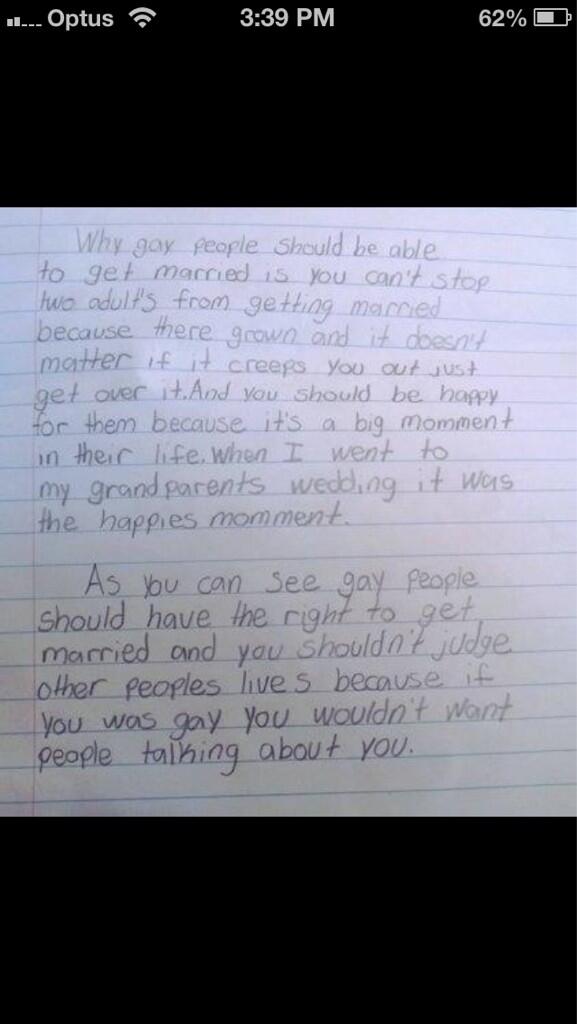 Optus 3:39 PM 62%
Why gay people should be able
to get married is you can't stop
two adult's from getting married
because there grown and it doesn't
matter if it creeps you out just
get over it. And you should be happy
for them because it's a big momment
in their life. When I went to
my grandparents wedding it was
the happies momment.
As you can see gay people
should have the right to get
married and you shouldn't judge
other peoples lives because if
you was gay you wouldn't want
people talking about you.